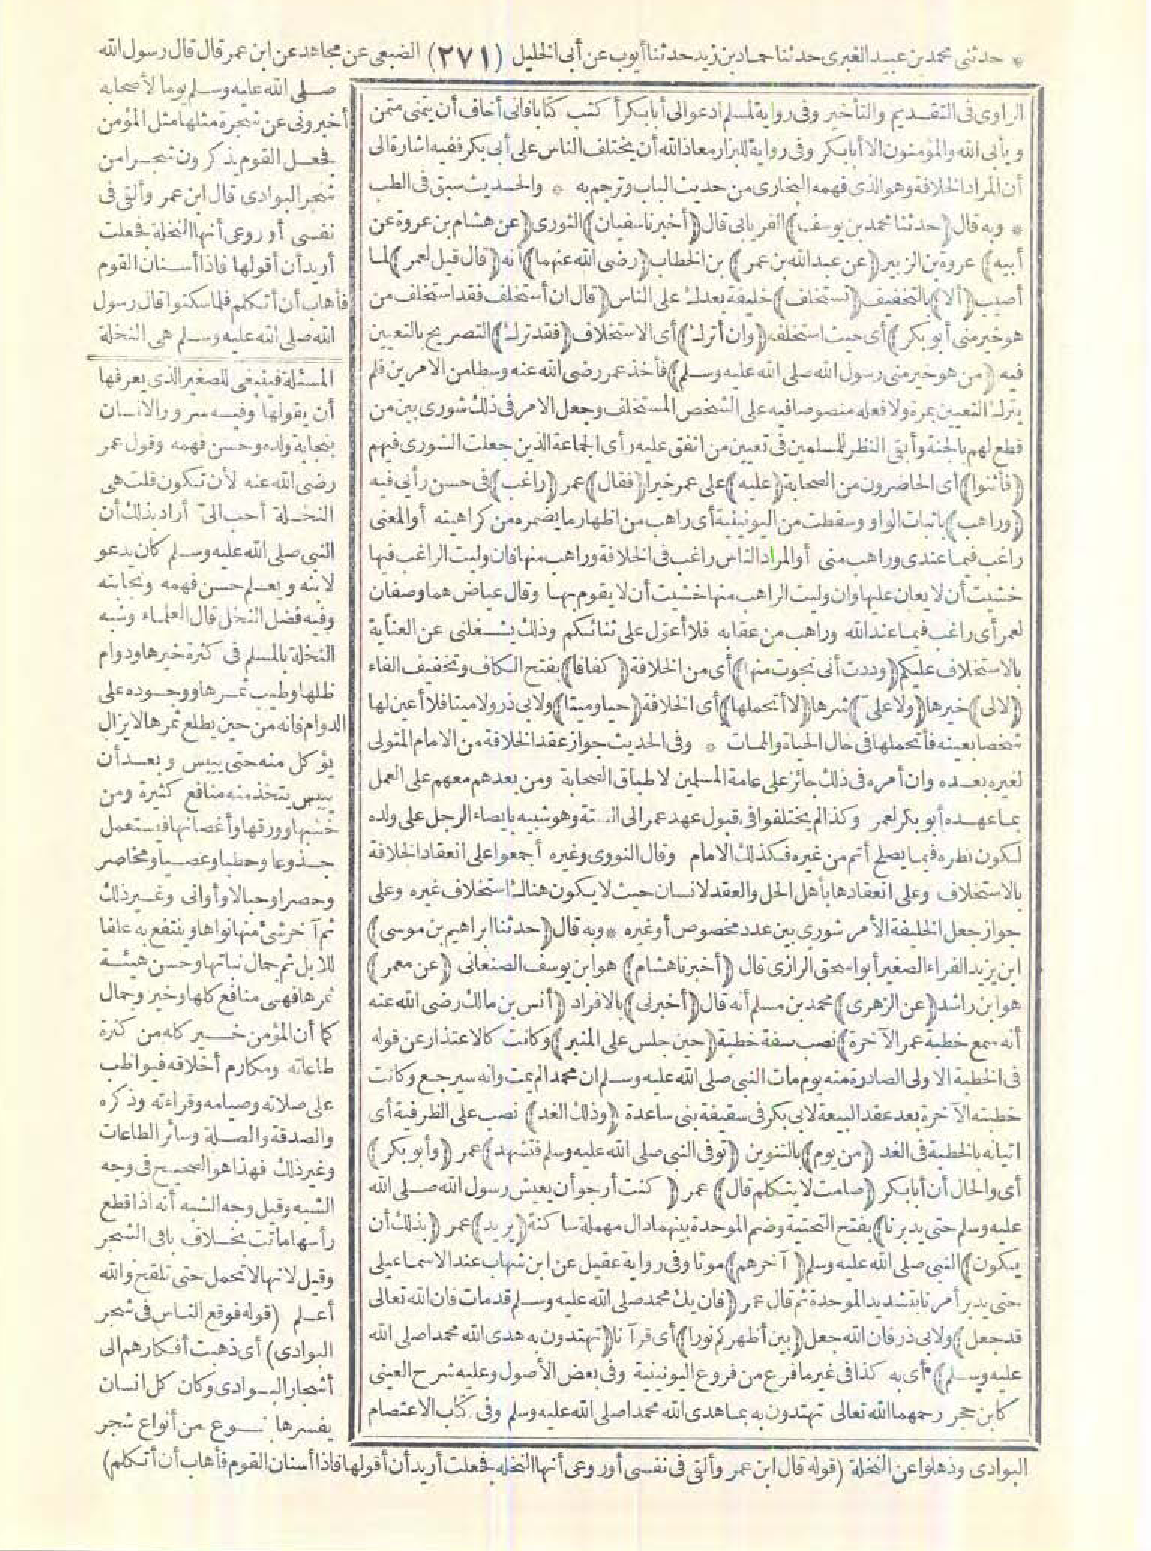 * حدثني محمد بن عبيد الغبرى حدثنا حماد بن زيد حدثنا أيوب عن أبى الخليل (٢٧١) الضبعى عن مجاهد عن ابن عمر قال قال رسول الله
صلى الله عليه وسلم يوما لأصحابه
أخبرونى عن شجرة مثلها مثل المؤمن
فجعل القوم يذكرون شجرا من
شجر البوادى قال ابن عمر وألقى فى
نفسى أو روعى أنها النخلة فجعلت
أريد أن أقولها فاذا أسنان القوم
فأهاب أن أتكلم فلما سكتوا قال رسول
الله صلى الله عليه وسلم هى النخلة
المسئلة فينبغى للصغير الذى يعرفها
أن يقولها وفيه سرور الانسان
بنجابة ولده وحسن فهمه وقول عمر
رضى الله عنه لأن تكون قلت هى
النخلة أحب الىّ أراد بذلك أن
النبى صلى الله عليه وسلم كان يدعو
لابنه ويعلم حسن فهمه ونجابته
وفيه فضل النخل قال العلماء وشبه
النخلة بالمسلم فى كثرة خيرها ودوام
ظلها وطيب ثمرها ووجوده على
الدوام فانه من حين يطلع ثمرها لا يزال
يؤكل منه حتى ييبس وبعد أن
ييبس يتخذ منه منافع كثيرة ومن
خشبها وورقها وأغصانها فيستعمل
جذوعا وحطبا وعصيا ومخاصر
وحصرا وحبالا وأوانى وغير ذلك
ثم آخر شئ منها نواها وينتفع به علفا
للابل ثم جمال نباتها وحسن هيئة
ثمرها فهى منافع كلها وخير وجمال
كما أن المؤمن خير كله من كثرة
طاعاته ومكارم أخلاقه فيواظب
على صلاته وصيامه وقراءته وذكره
والصدقة والصلة وسائر الطاعات
وغير ذلك فهذا هو الصحيح فى وجه
الشبه وقيل وجه الشبه أنه اذا قطع
رأسها ماتت بخلاف باقى الشجر
وقيل لانها لا تحمل حتى تلقح والله
أعلم (قوله فوقع الناس فى شجر
البوادى) أى ذهبت أفكارهم الى
أشجار البوادى وكان كل انسان
يفسرها بنوع من أنواع شجر
الراوى فى التقديم والتأخير وفى رواية لمسلم ادعو الى أبا بكر أكتب كتابا فانى أخاف أن يتمنى متمن
ويأبى الله والمؤمنون الا أبا بكر وفى رواية للبزار معاذ الله أن يختلف الناس على أبى بكر ففيه اشارة الى
أن المراد الخلافة وهو الذى فهمه البخارى من حديث الباب وترجم به * والحديث سبق فى الطب
* وبه قال (حدثنا محمد بن يوسف) الفريابى قال (أخبرنا سفيان) الثورى (عن هشام بن عروة عن
أبيه) عروة بن الزبير (عن عبد الله بن عمر) بن الخطاب (رضى الله عنهما) أنه (قال قيل لعمر) لما
أصيب (ألا) بالتخفيف (تستخلف) خليفة بعدك على الناس (قال ان أستخلف فقد استخلف من
هو خير منى أبو بكر) أى حيث استخلفه (وان أترك) أى الاستخلاف (فقد ترك) التصريح بالتعيين
فيه (من هو خير منى رسول الله صلى الله عليه وسلم) فأخذ عمر رضى الله عنه وسطا من الامرين فلم
يترك التعيين بمرة ولا فعله منصوصا فيه على الشخص المستخلف وجعل الامر فى ذلك شورى بين من
قطع لهم بالجنة وأبقى النظر للمسلمين فى تعيين من اتفق عليه رأى الجماعة الذين جعلت الشورى فيهم
(فأثنوا) أى الحاضرون من الصحابة (عليه) على عمر خيرا (فقال) عمر (راغب) فى حسن رأيى فيه
(وراهب) باثبات الواو وسقطت من اليونينية أى راهب من اظهار ما يضمره من كراهيته أو المعنى
راغب فيما عندى وراهب منى أو المراد الناس راغب فى الخلافة وراهب منها فان وليت الراغب فيها
خشيت أن لا يعان عليها وان وليت الراهب منها خشيت أن لا يقوم بها وقال عياض هما وصفان
لعمر أى راغب فيما عند الله وراهب من عقابه فلا أعول على ثنائكم وذلك يشغلنى عن العناية
بالاستخلاف عليكم (وددت أنى نجوت منها) أى من الخلافة (كفافا) بفتح الكاف وتخفيف الفاء
(لا لى) خيرها (ولا علىّ) شرها (لا أتحملها) أى الخلافة (حيا وميتا) ولابى ذر ولا ميتا فلا أعين لها
شخصا بعينه فأتحملها فى حال الحياة والممات * وفى الحديث جواز عقد الخلافة من الامام المتولى
لغيره بعده وان أمره فى ذلك جائز على عامة المسلمين لاطباق الصحابة ومن بعدهم معهم على العمل
بما عهده أبو بكر لعمر وكذا لم يختلفوا فى قبول عهد عمر الى الستة وهو شبيه بايصاء الرجل على ولده
لكون نظره فيما يصلح أتم من غيره فكذلك الامام وقال النووى وغيره أجمعوا على انعقاد الخلافة
بالاستخلاف وعلى انعقادها بأهل الحل والعقد لانسان حيث لا يكون هناك استخلاف غيره وعلى
جواز جعل الخليفة الأمر شورى بين عدد مخصوص أو غيره * وبه قال (حدثنا ابراهيم بن موسى)
ابن يزيد الفراء الصغير أبو اسحق الرازى قال (أخبرنا هشام) هو ابن يوسف الصنعانى (عن معمر)
هو ابن راشد (عن الزهرى) محمد بن مسلم أنه قال (أخبرنى) بالافراد (أنس بن مالك رضى الله عنه
أنه سمع خطبة عمر الآخرة) نصب صفة خطبة (حين جلس على المنبر) وكانت كالاعتذار عن قوله
فى الخطبة الاولى الصادرة منه يوم مات النبى صلى الله عليه وسلم ان محمدا لم يمت وانه سيرجع وكانت
خطبته الآخرة بعد عقد البيعة لابى بكر فى سقيفة بنى ساعدة (وذلك الغد) نصب على الظرفية أى
اتيانه بالخطبة فى الغد (من يوم) بالتنوين (توفى النبى صلى الله عليه وسلم فتشهد) عمر (وأبو بكر)
أى والحال أن أبا بكر (صامت لا يتكلم قال) عمر (كنت أرجو أن يعيش رسول الله صلى الله
عليه وسلم حتى يدبرنا) بفتح التحتية وضم الموحدة بينهما دال مهملة ساكنة (يريد) عمر (بذلك أن
يكون) النبى صلى الله عليه وسلم (آخرهم) موتا وفى رواية عقيل عن ابن شهاب عند الاسماعيلى
حتى يدبر أمرنا بتشديد الموحدة ثم قال عمر (فان يك محمد صلى الله عليه وسلم قد مات فان الله تعالى
قد جعل) ولابى ذر فان الله جعل (بين أظهركم نورا) أى قرآنا (تهتدون به هدى الله محمدا صلى الله
عليه وسلم) أى به كذا فى غير ما فرع من فروع اليونينية وفى بعض الأصول وعليه شرح العينى
كابن حجر رحمهما الله تعالى تهتدون به بما هدى الله محمدا صلى الله عليه وسلم وفى كتاب الاعتصام
البوادى وذهلوا عن النخلة (قوله قال ابن عمر وألقى فى نفسى أو روعى أنها النخلة فجعلت أريد أن أقولها فاذا أسنان القوم فأهاب أن أتكلم)